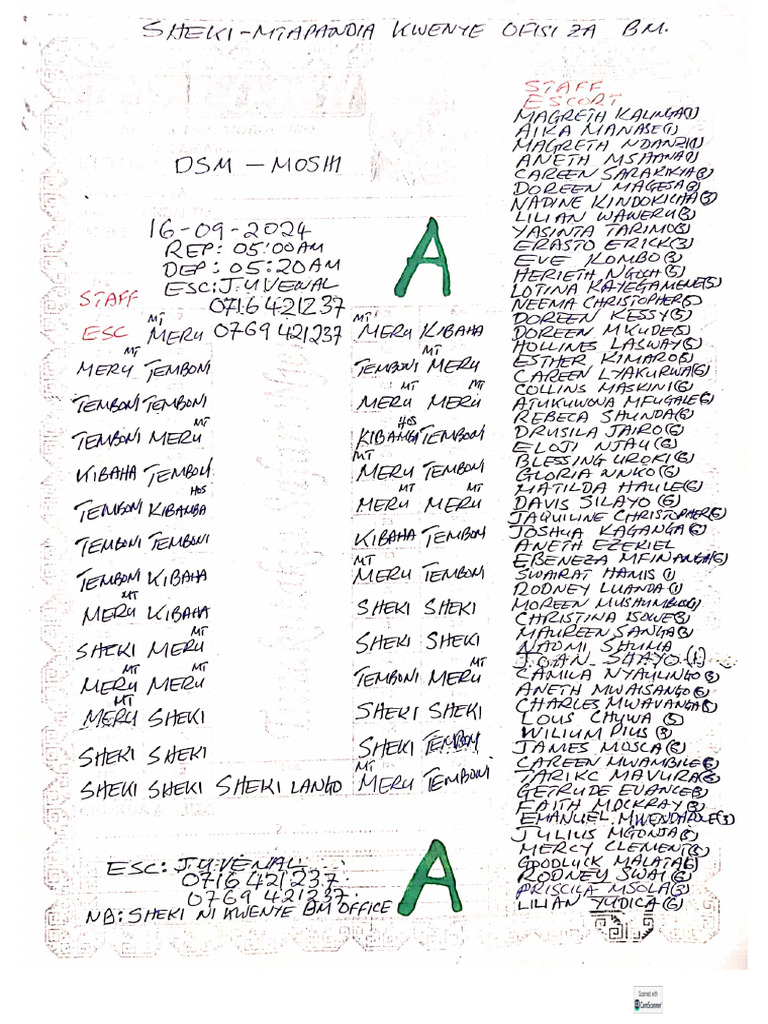 SHEKI-MTAPANDIA KWENYE OFISI ZA BM.
DSM - MOSHI
16-09-2024
REP: 05:00AM
DEP: 05:20AM
ESC: J.UVENAL
0716421237
0769 421237
A
STAFF
ESC MT MERU MT MERU KIBAHA
MT MERU TEMBONI TEMBONI MT MERU
TEMBONI TEMBONI MT MERU MT MERU
TEMBONI MT MERU HOS KIBAMBA TEMBONI
KIBAHA TEMBONI MT MERU TEMBONI
TEMBONI HOS KIBAMBA MT MERU MT MERU
TEMBONI TEMBONI KIBAHA TEMBONI
TEMBONI KIBAHA MT MERU TEMBONI
MT MERU KIBAHA SHEKI SHEKI
SHEKI MT MERU SHEKI SHEKI
MT MERU MT MERU TEMBONI MT MERU
MT MERU SHEKI SHEKI SHEKI
SHEKI SHEKI SHEKI TEMBONI
SHEKI SHEKI SHEKI LANGO MT MERU TEMBONI
ESC: J.UVENAL
0716 421237
0769 421237
NB: SHEKI NI KWENYE BM OFFICE
A
STAFF
ESCORT
MAGRETH KALINGA(1)
AIKA MANASE(1)
MAGRETH NDANZI(1)
ANETH MSAANA(1)
CAREEN SARAKIKYA(3)
DOREEN MAGESA(3)
NADINE KINDOKICHA(3)
LILIAN WAWERU(3)
YASINTA TARIMO(3)
ERASTO ERICK(3)
EVE KOMBO(3)
HERIETH NGOCH(5)
LOTINA KAYEGAMENE(5)
NEEMA CHRISTOPHER(5)
DOREEN KESSY(5)
DOREEN MKUDE(5)
HOLLINES LASWAY(5)
ESTHER KIMARO(5)
CAREEN LYAKURWA(6)
COLLINS MASKINI(6)
ATUKUWONA MFUGALE(6)
REBECA SHUNDA(6)
DRUSILA JAIRO(6)
ELOJI NJAU(6)
BLESSING UROKI(6)
GLORIA NNKO(6)
MATILDA HAULE(6)
DAVIS SILAYO(6)
JAQUILINE CHRISTOPHER(6)
JOSHUA KAGANGA(6)
ANETH EZEKIEL
EBENEZA MFINANGA(6)
SWAIRAT HAMIS(1)
RODNEY LUANDA(1)
MOREEN MUSHUMBUSI
CHRISTINA ISOWE(3)
MAUREEN SANGA(3)
NAOMI SHUMA
JOAN SHAYO(1)
CAMILA NYAULINGO(3)
ANETH MWAISANGO(6)
CHARLES MWAVANGA(5)
LOUS CHUWA(5)
WILIUM PIUS(3)
JAMES MOSCA(6)
CAREEN MWAMBILE(6)
TARIKC MAVURA(6)
GETRUDE EVANCE(3)
FAITH MOCKRAY(3)
EMANUEL MWENDAPOLE(3)
JULIUS MGONJA(5)
MERCY CLEMENT(5)
GOODLUCK MALATA(6)
RODNEY SWAI(6)
PRISCILA MSOLA(3)
LILIAN YUDICA(6)
Scanned with
CamScanner